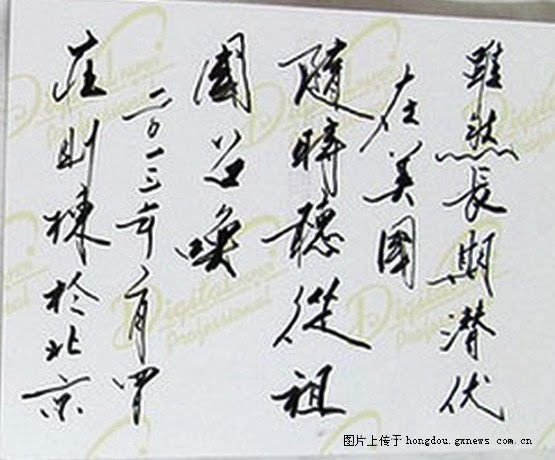 雖然長期潜伏
在美國
隨時聽從祖
國召喚
二〇一三年一月四
庄則棟於北京
Digital
Professional
图片上传于 hongdou.gxnews.com.cn